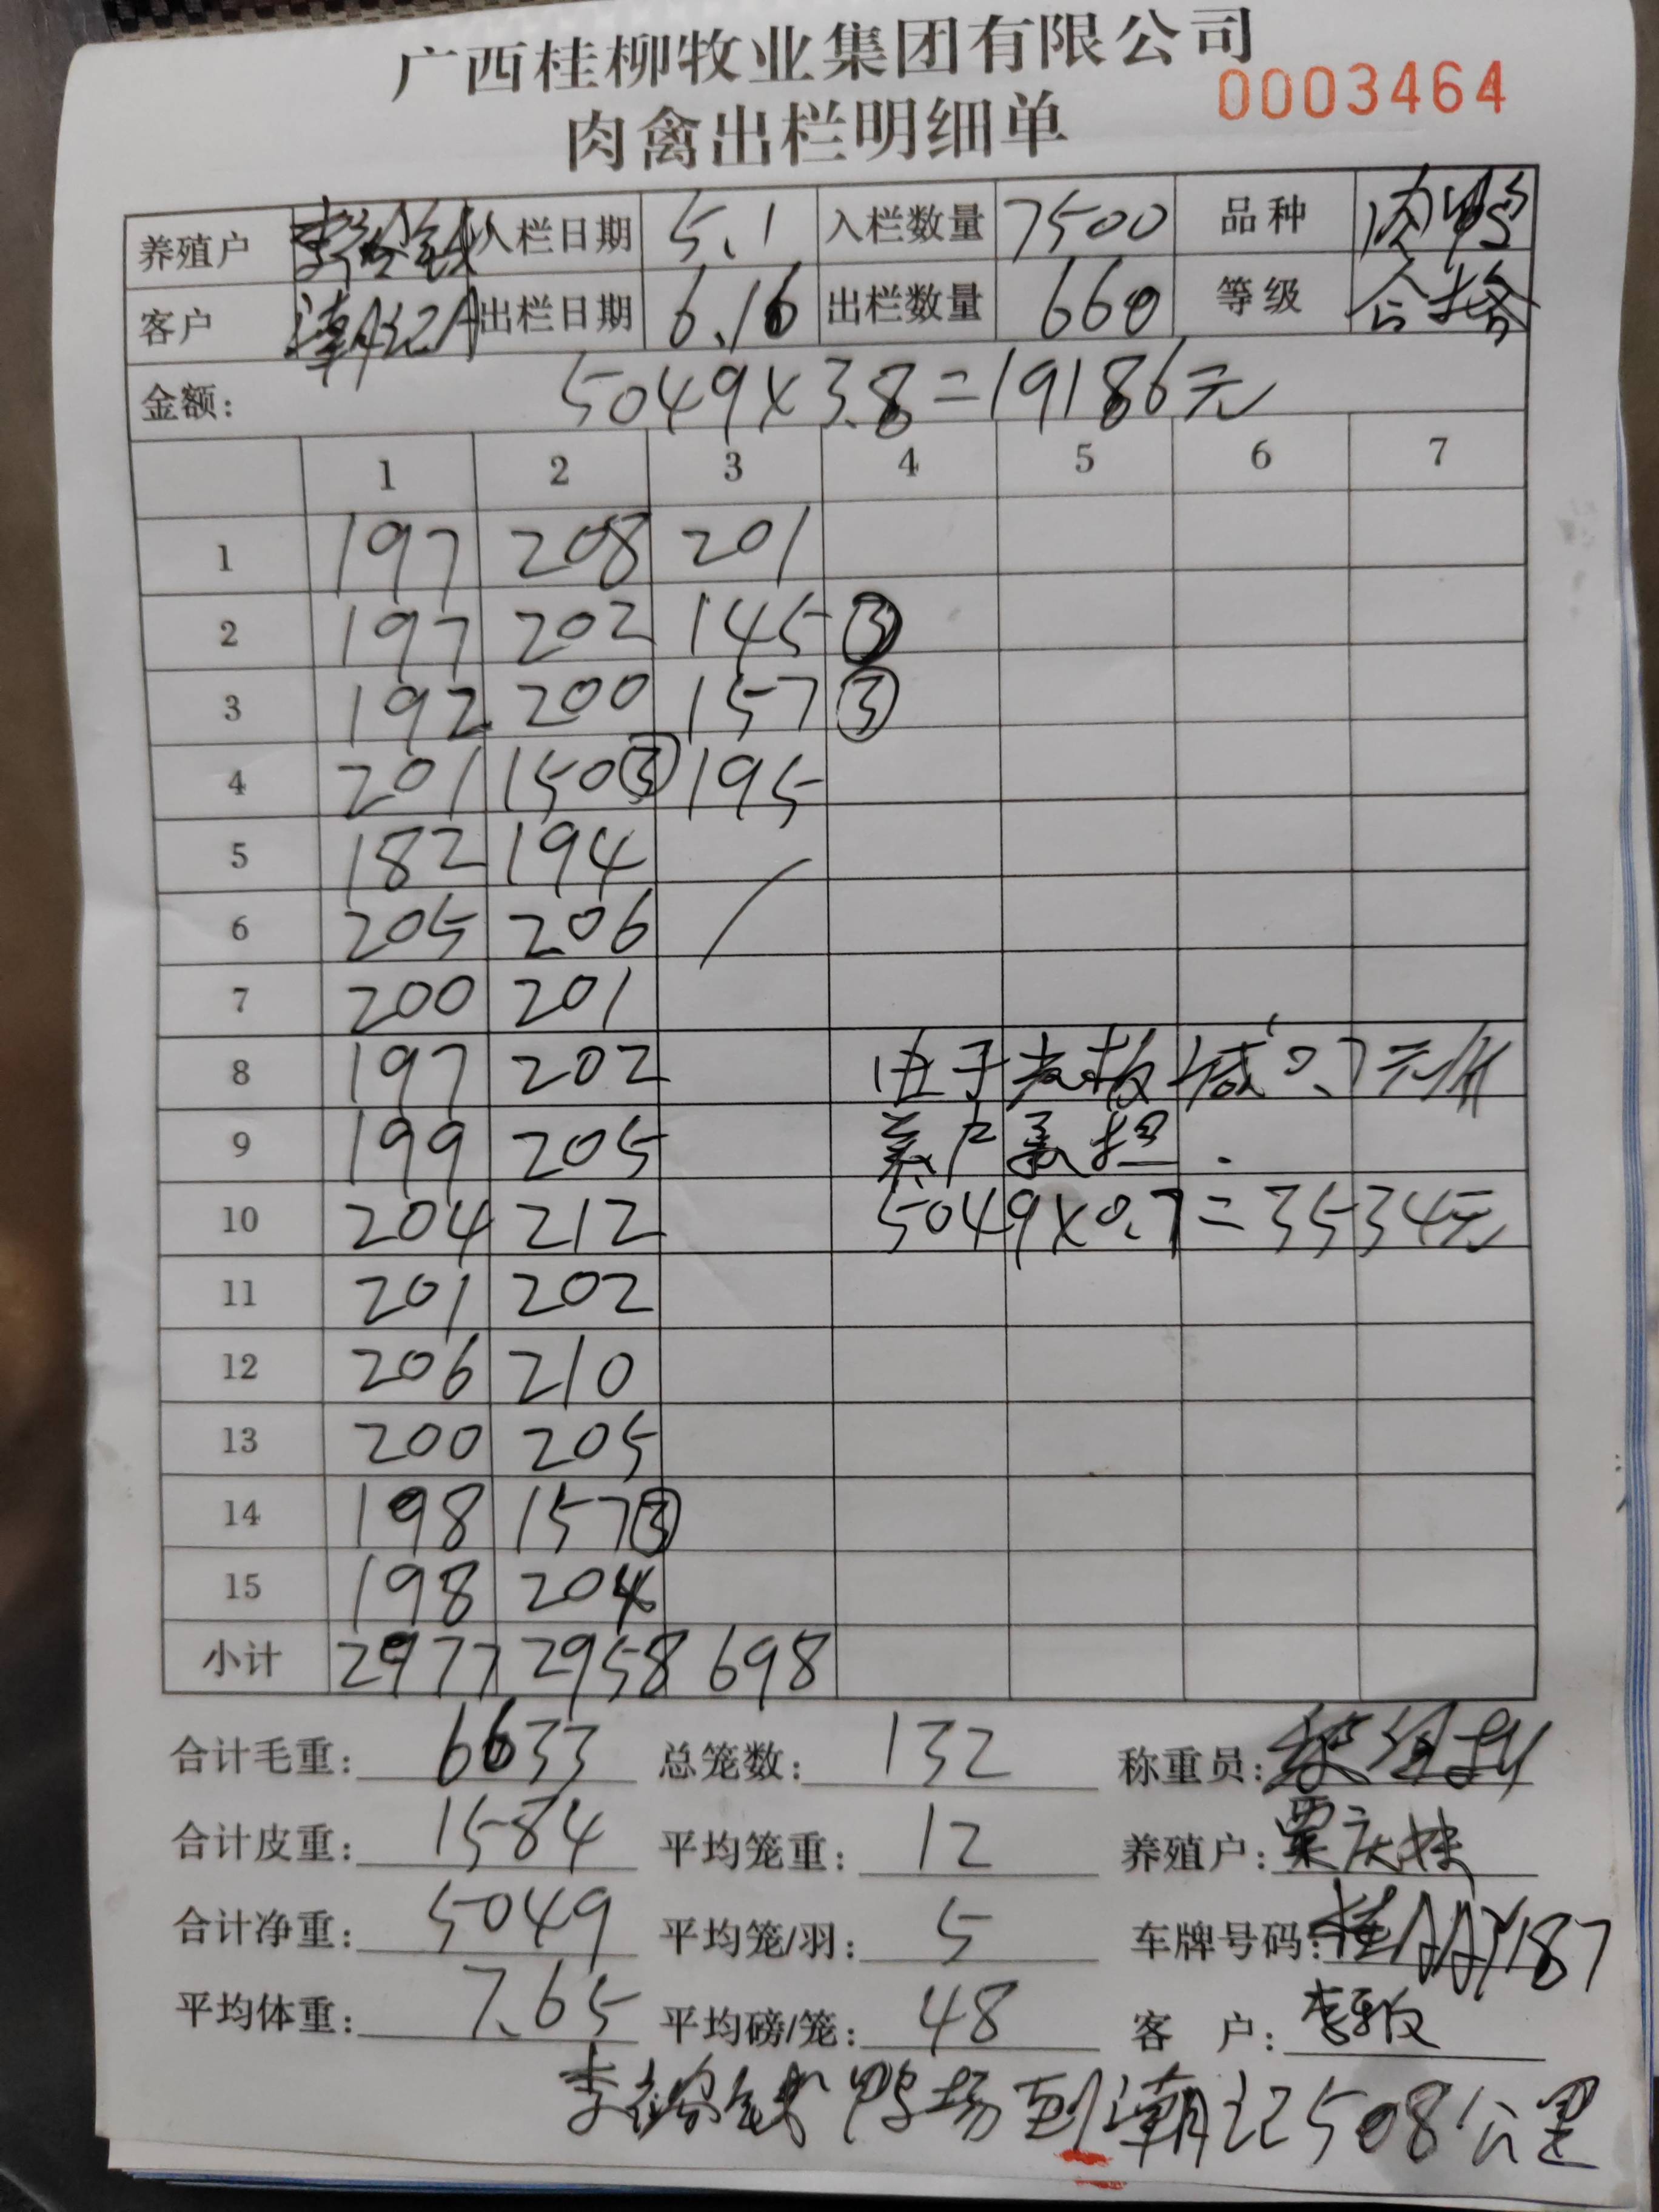 广西桂柳牧业集团有限公司
0003464
肉禽出栏明细单
养殖户 入栏日期 5.1 入栏数量 7500 品种 肉鸭
客户 潮记A 出栏日期 6.16 出栏数量 660 等级 合格
金额: 5049×3.8=19186元
1 2 3 4 5 6 7
1 197 208 201
2 197 202 145 ③
3 192 200 157 ③
4 201 150③ 195
5 182 194
6 205 206
7 200 201
8 197 202 由于老板减0.7元/斤
9 199 205 养户承担.
10 204 212 5049×0.7=3534元
11 201 202
12 206 210
13 200 205
14 198 157③
15 198 204
小计 2977 2958 698
合计毛重: 6633 总笼数: 132 称重员:
合计皮重: 1584 平均笼重: 12 养殖户: 覃庆扶
合计净重: 5049 平均笼/羽: 5 车牌号码: 桂AAY187
平均体重: 7.65 平均磅/笼: 48 客 户:
鸭场到潮记508公里